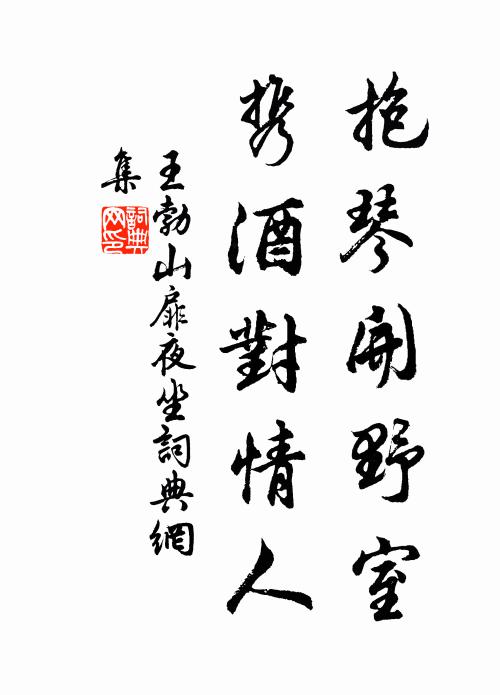 抱琴開野室
携酒對情人
王勃山扉夜坐詞典網
集
詞典網印